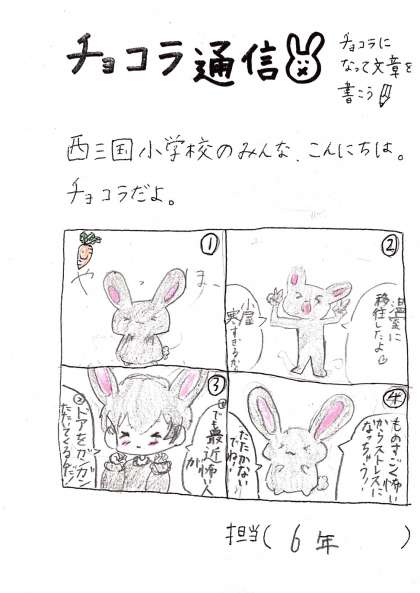 チョコラ通信
チョコラに
なって文章を
書こう
西三国小学校のみんな、こんにちは。
チョコラだよ。
①
やっ
ほー
②
温室に
移住したよ
小屋
寒すぎるから
③
①でも最近怖い人が
②ドアをガンガン
たたいてくるんだ
④
ものすごく怖い
からストレスに
なっちゃう!
たたかない
でね!
担当( 6年 )